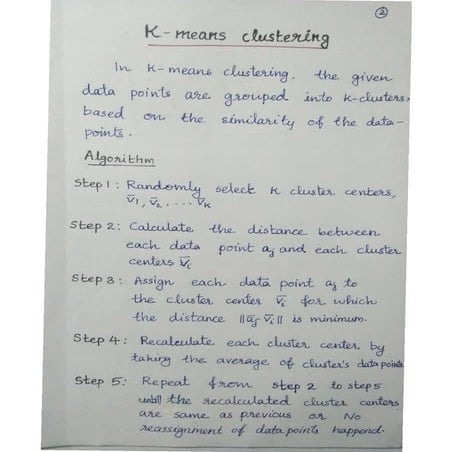 2
K-means clustering
In K-means clustering, the given
data points are grouped into K-clusters,
based on the similarity of the data-
points.
Algorithm
Step 1: Randomly select K cluster centers,
v̄1, v̄2.... v̄K
Step 2: Calculate the distance between
each data point aj and each cluster
centers v̄i
Step 3: Assign each data point aj to
the cluster center v̄i for which
the distance ||āj-v̄i|| is minimum.
Step 4: Recalculate each cluster center by
taking the average of cluster's data points
Step 5: Repeat from step 2 to step 5
until the recalculated cluster centers
are same as previous or No
reassignment of data points happend.